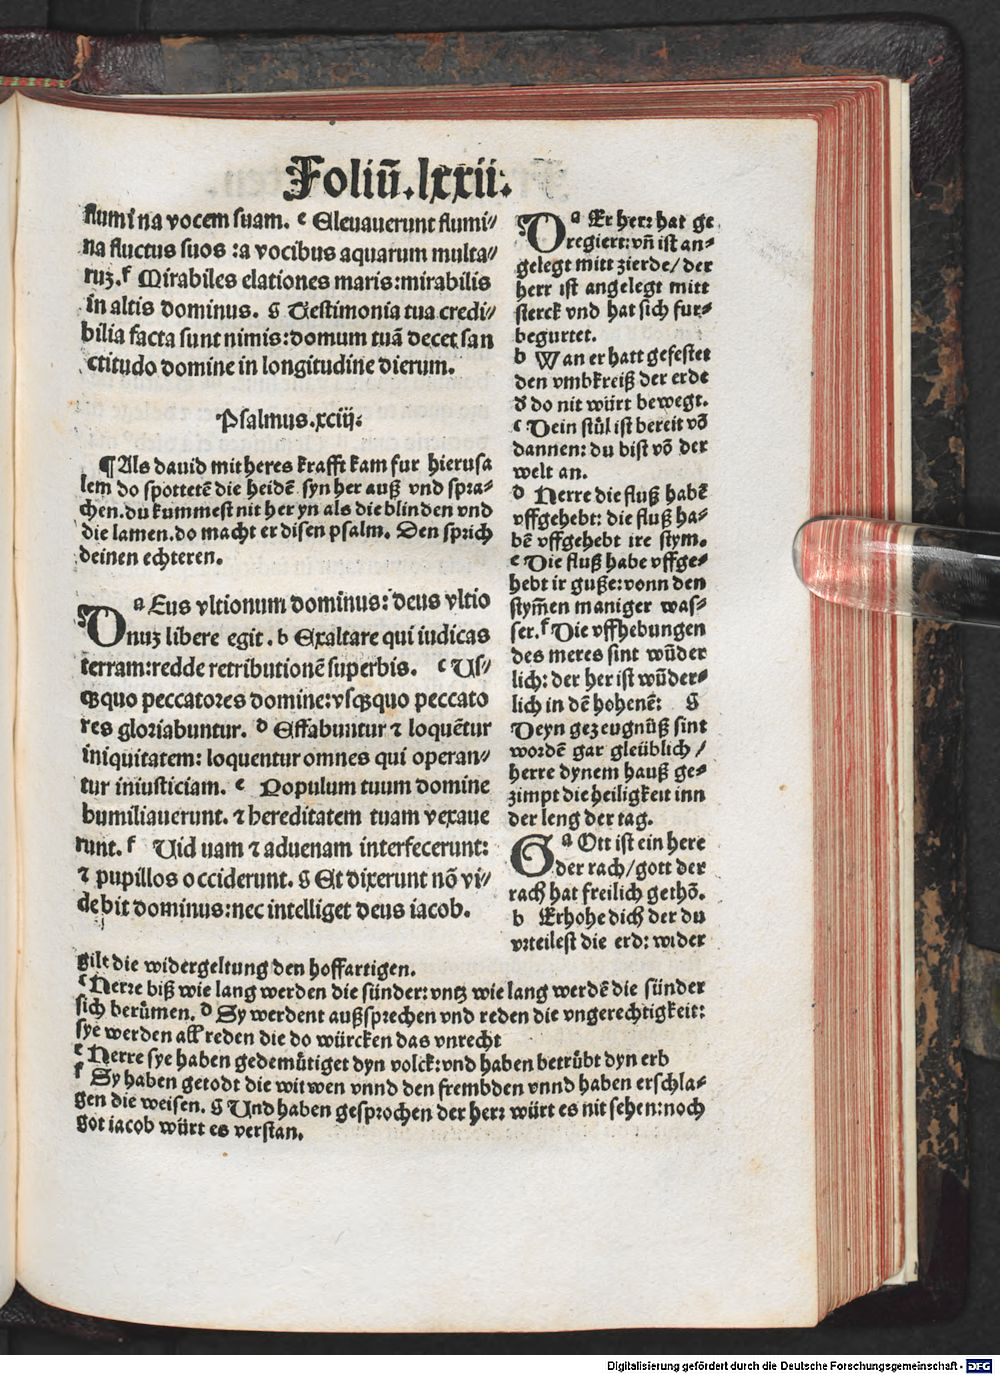 Foliũ.lxxii.
flumina vocem suam. c Eleuauerunt flumi⸗
na fluctus suos :a vocibus aquarum multa⸗
ruꝫ. f Mirabiles elationes maris:mirabilis
in altis dominus. g Testimonia tua credi⸗
bilia facta sunt nimis:domum tuã decet san
ctitudo domine in longitudine dierum.
Psalmus.xciij.
¶ Als dauid mit heres krafft kam fur hierusa
lem do spottetẽ die heidẽ syn her auß vnd spra⸗
chen.du kummest nit her yn als die blinden vnd
die lamen.do macht er disen psalm. Den sprich
deinen echteren.
D a Eus vltionum dominus: deus vltio
nuꝫ libere egit. b Exaltare qui iudicas
terram:redde retributionẽ superbis. c Us⸗
qꝫquo peccatores domine:vsqꝫquo peccato
res gloriabuntur. d Effabuntur ⁊ loquẽtur
iniquitatem: loquentur omnes qui operan⸗
tur iniusticiam. e Populum tuum domine
humiliauerunt. ⁊ hereditatem tuam vexaue
runt. f Uid uam ⁊ aduenam interfecerunt:
⁊ pupillos occiderunt. g Et dixerunt nõ vi⸗
debit dominus:nec intelliget deus iacob.
D a Er herr hat ge
regiert:vñ ist an⸗
gelegt mitt zierde/ der
herr ist angelegt mitt
sterck vnd hat sich fur⸗
begurtet.
b Wan er hatt gefestet
den vmbkreiß der erde
d̕ do nit würt bewegt.
c Dein stůl ist bereit võ
dannen: du bist võ der
welt an.
d Herre die fluß habẽ
vffgehebt: die fluß ha⸗
bẽ vffgehebt ire stym.
e Die fluß habe vffge⸗
hebt ir guße:vonn den
stym̃en maniger was⸗
ser. f Die vffhebungen
des meres sint wũder
lich: der her ist wũder⸗
lich in dẽ hohenẽ: g
Deyn gezeugnüß sint
wordẽ gar gleüblich /
herre dynem hauß ge⸗
zimpt die heiligkeit inn
der leng der tag.
G a Ott ist ein here
der rach/gott der
rach hat freilich gethõ.
b Erhohe dich der du
vrteilest die erd: wider
gilt die widergeltung den hoffartigen.
c Herre biß wie lang werden die sünder:vntz wie lang werdẽ die sünder
sich berümen. d Sy werdent außsprechen vnd reden die vngerechtigkeit:
sye werden all reden die do würcken das vnrecht
e Herre sye haben gedemütiget dyn volck:vnd haben betrübt dyn erb
f Sy haben getodt die witwen vnnd den frembden vnnd haben erschla⸗
gen die weisen. g Und haben gesprochen der herr würt es nit sehen:noch
got iacob würt es verstan.
Digitalisierung gefördert durch die Deutsche Forschungsgemeinschaft - DFG